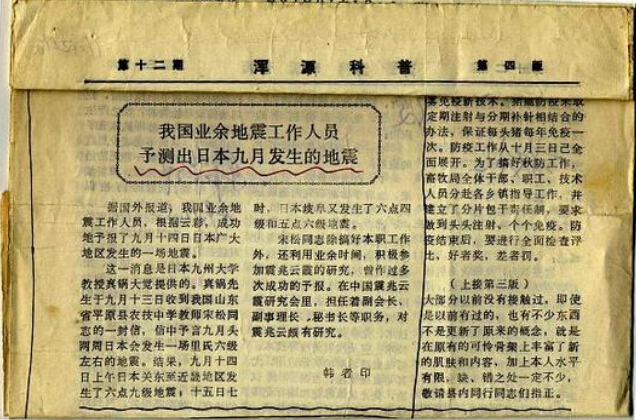 第十二期 浑源科普 第四版
我国业余地震工作人员
予测出日本九月发生的地震
据国外报道：我国业余地
震工作人员，根据云彩，成功
地予报了九月十四日日本广大
地区发生的一场地震。
这一消息是日本九州大学
教授真锅大觉提供的。真锅先
生于九月十三日收到我国山东
省平原县农技中学教师宋松同
志的一封信，信中予言九月头
两周日本会发生一场里氏六级
左右的地震。结果，九月十四
日上午日本关东至近畿地区发
生了六点九级地震；十五日七
时，日本岐阜又发生了六点四
级和五点六级地震。
宋松同志除搞好本职工作
外，还利用业余时间，积极参
加震兆云霞的研究，曾作过多
次成功的予报。在中国震兆云
霞研究会里，担任着副会长、
副事理长、秘书长等职务，对
震兆云颇有研究。
韩者印
定期注射与分期补针相结合的
办法，保证每头猪每年免疫一
次。防疫工作从十月三日已全
面展开。为了搞好秋防工作，
畜牧局全体干部、职工、技术
人员分赴各乡镇指导工作，并
建立了分片包干责任制，要求
做到头头注射，个个免疫。防
疫结束后，要进行全面检查评
比，好者奖，差者罚。
（上接第三版）
大部分以前没有接触过，即使
是以前有过的，也有不少东西
不是更新了原来的概念，就是
在原有的可怜骨架上丰富了新
的肌肤和内容，加上本人水平
有限，缺、错之处一定不少，
敬请县内同行同志们指正。